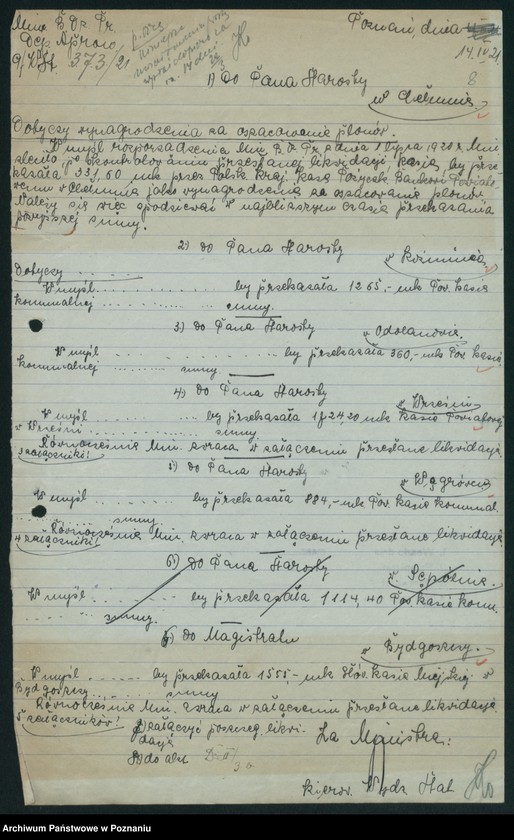 Min. B. Dz. Pr.
Dep. Aprow.
Poznań, dnia
14.IV.21
373/21
8
1) Do Pana Starosty
w Chełmnie
Dotyczy wynagrodzenia za oszacowanie plonów.
W myśl rozporządzenia Min. B. Dz. Pr. z dnia 1 lipca 1920 r. Min.
zleciło, po skontrolowaniu przesłanej likwidacji kasie, by prze-
kazała 331,60 mk przez Polską Kraj. Kasę Pożyczk. Bankowi Powiato-
wemu w Chełmnie jako wynagrodzenie za oszacowanie plonów
Należy się więc spodziewać w najbliższym czasie przekazania
powyższej sumy.
2) do Pana Starosty
w Koźminie
Dotyczy . . . . . . .
W myśl . . . . . . . by przekazała 1265,- mk Pow. kasie
komunalnej . . . . . . . sumy.
3) do Pana Starosty
w Odolanowie.
W myśl . . . . . . . by przekazała 360,- mk Pow. kasie
komunalnej . . . . . . . sumy
4) do Pana Starosty
w Wrześni
W myśl . . . . . . . by przekazała 1824,20 mk kasie Powiatowej
w Wrześni . . . . . . . sumy
Równocześnie Min. zwraca w załączeniu przesłane likwidacje
załączniki!
5) do Pana Starosty
w Wągrówcu
W myśl . . . . . . . by przekazała 884,- mk Pow. kasie komunal.
. . . . . . . sumy.
Równocześnie Min. zwraca w załączeniu przesłane likwidacje
4 załączniki!
6) do Pana Starosty
w Sępólnie.
W myśl . . . . . . . by przekazała 1114,40 Pow. kasie komu.
. . . . . . . sumy.
6) do Magistratu
w Bydgoszczy.
W myśl . . . . . . . by przekazała 1555,- mk Głów. kasie Miejskiej w
Bydgoszczy . . . . . . . sumy
Równocześnie Min. zwraca w załączeniu przesłane likwidacje
5 załączników!
7) załączyć poszczeg. likwi-
dacje
8) do akt
Za Ministra:
kierow. Wydz. Stat.
Archiwum Państwowe w Poznaniu